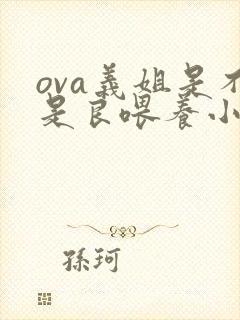 ova義姐是不
是良喂養小
孫珂